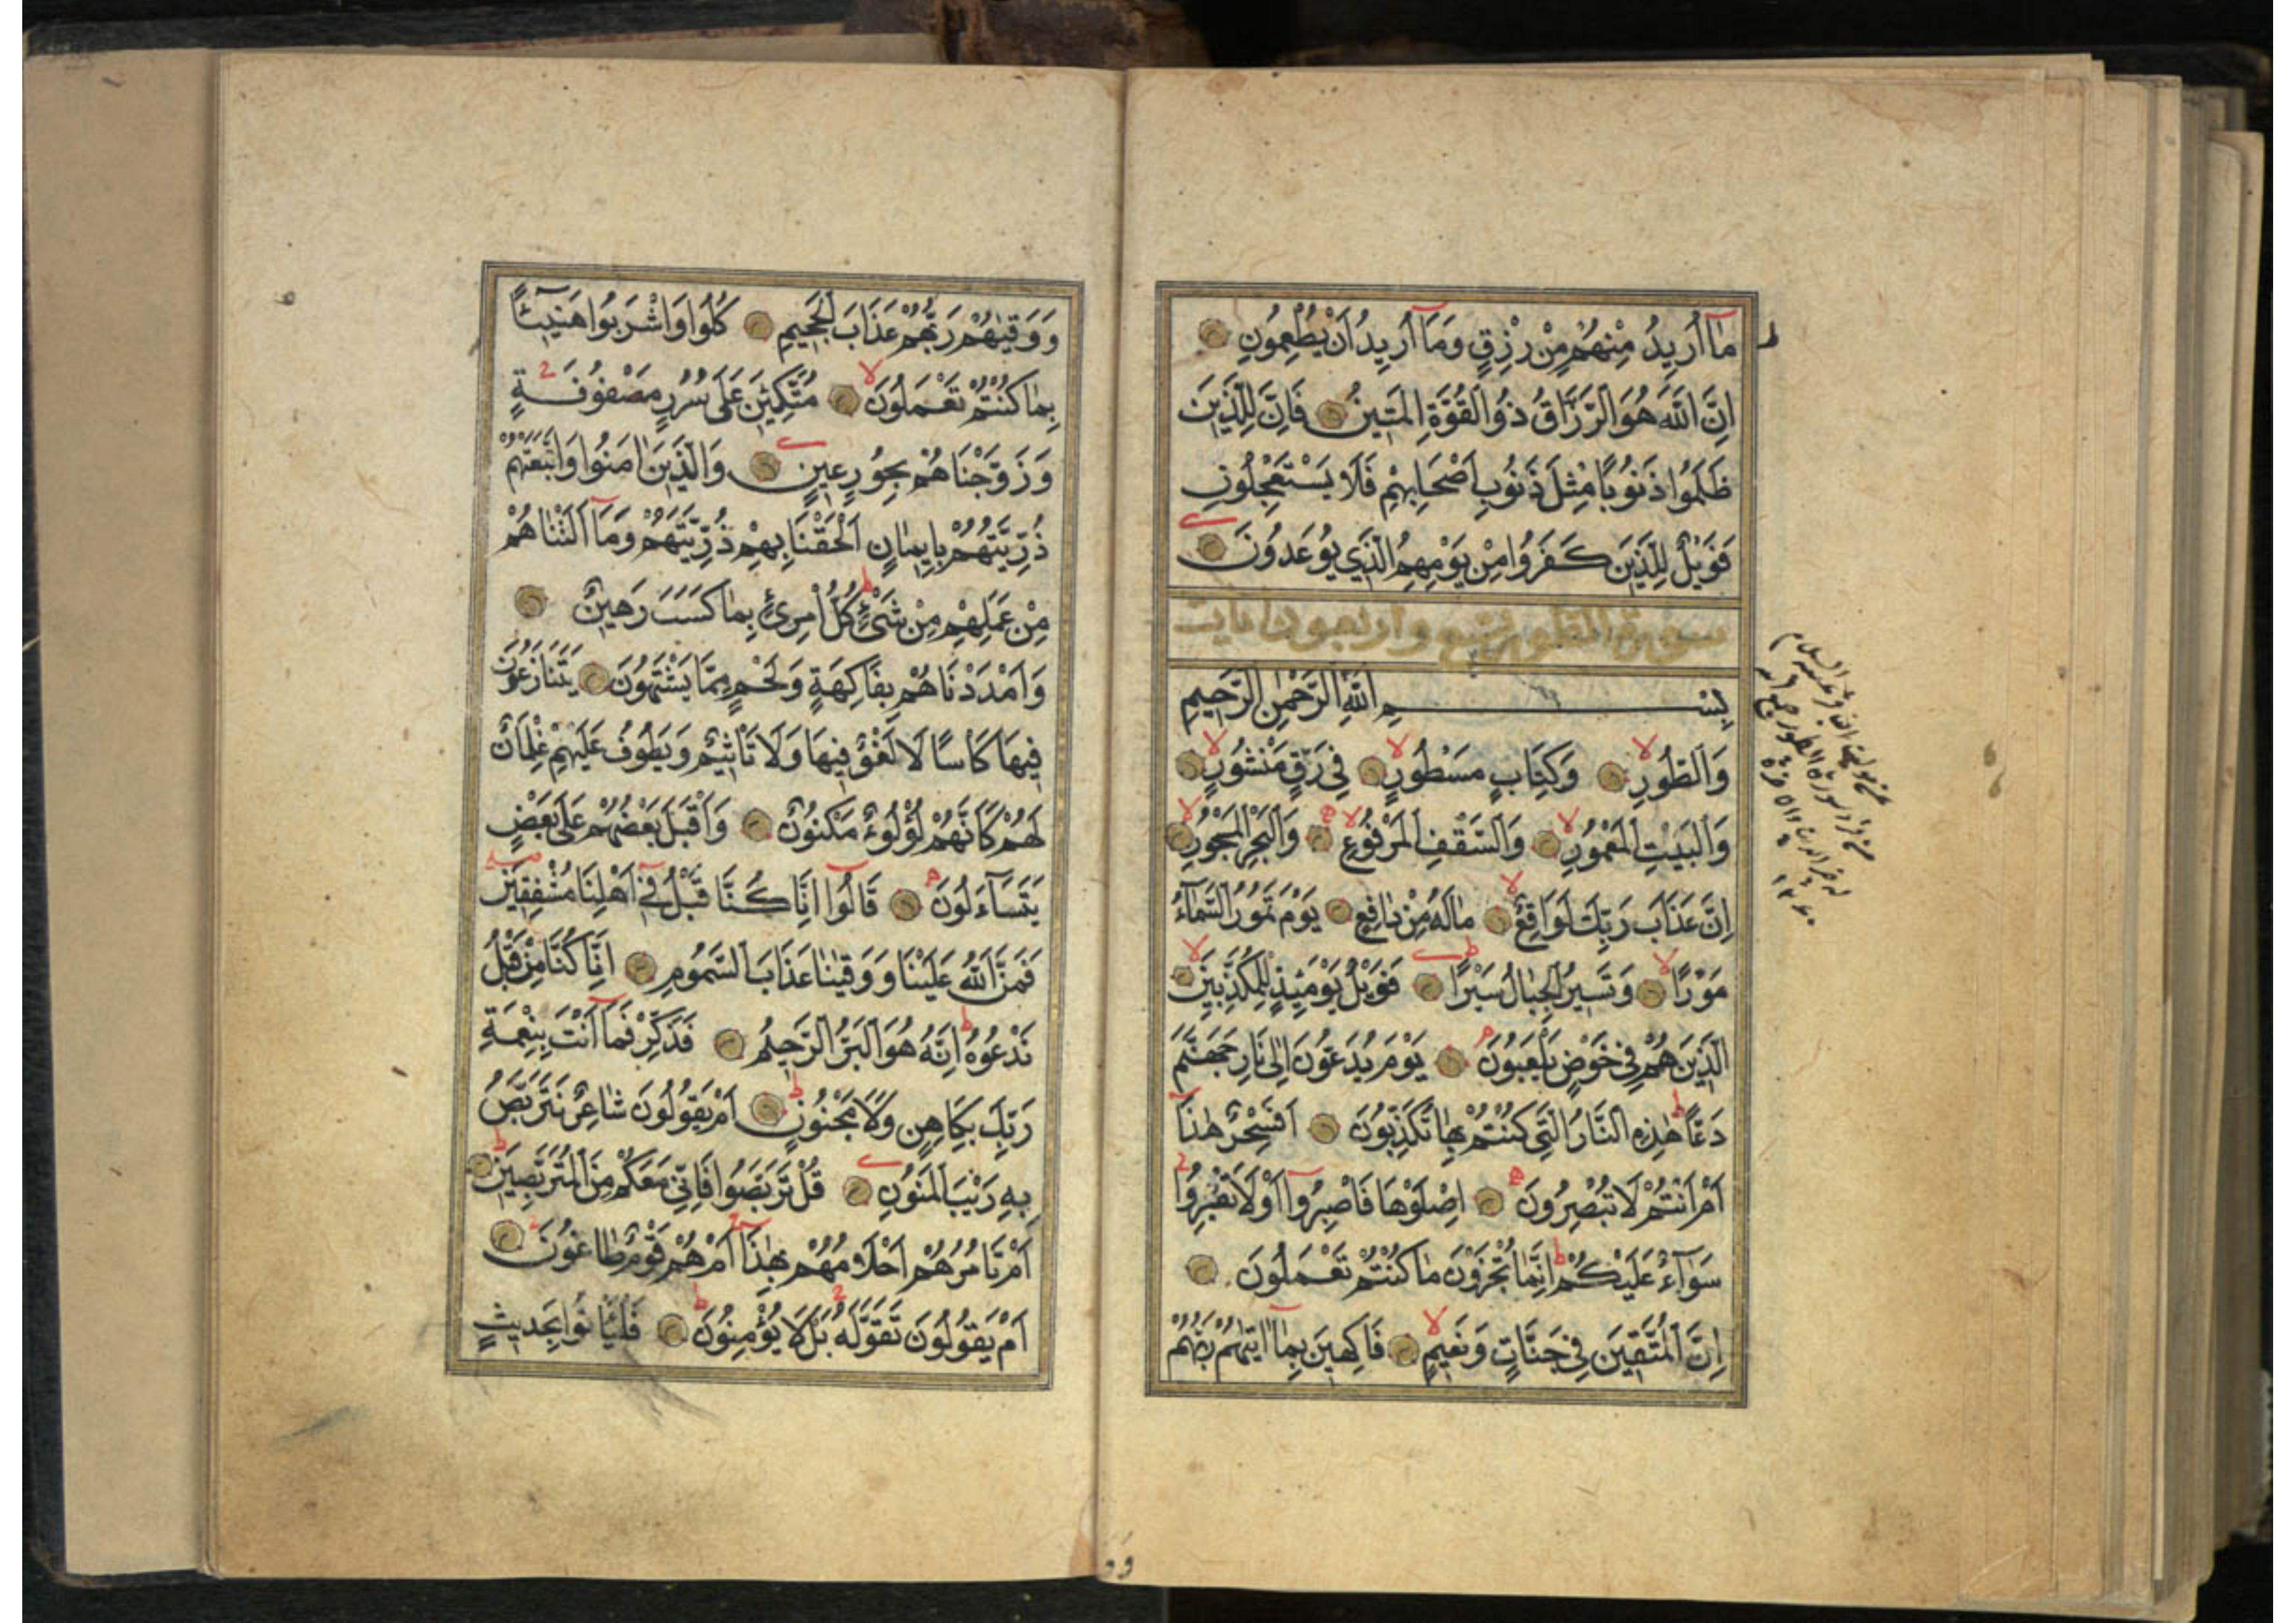 مَٓا اُرِيدُ مِنْهُمْ مِنْ رِزْقٍ وَمَٓا اُرِيدُ اَنْ يُطْعِمُونِ
اِنَّ اللّٰهَ هُوَ الرَّزَّاقُ ذُو الْقُوَّةِ الْمَتِينُ فَاِنَّ لِلَّذِينَ
ظَلَمُوا ذَنُوبًا مِثْلَ ذَنُوبِ اَصْحَابِهِمْ فَلَا يَسْتَعْجِلُونِ
فَوَيْلٌ لِلَّذِينَ كَفَرُوا مِنْ يَوْمِهِمُ الَّذِي يُوعَدُونَ
سورة الطور تسع واربعون ايات
بِسْمِ اللّٰهِ الرَّحْمٰنِ الرَّحِيمِ
وَالطُّورِ وَكِتَابٍ مَسْطُورٍ فِي رَقٍّ مَنْشُورٍ
وَالْبَيْتِ الْمَعْمُورِ وَالسَّقْفِ الْمَرْفُوعِ وَالْبَحْرِ الْمَسْجُورِ
اِنَّ عَذَابَ رَبِّكَ لَوَاقِعٌ مَالَهُ مِنْ دَافِعٍ يَوْمَ تَمُورُ السَّمَٓاءُ
مَوْرًا وَتَسِيرُ الْجِبَالُ سَيْرًا فَوَيْلٌ يَوْمَئِذٍ لِلْمُكَذِّبِينَ
الَّذِينَ هُمْ فِي خَوْضٍ يَلْعَبُونَ يَوْمَ يُدَعُّونَ اِلٰى نَارِ جَهَنَّمَ
دَعًّا هٰذِهِ النَّارُ الَّتِي كُنْتُمْ بِهَا تُكَذِّبُونَ اَفَسِحْرٌ هٰذَا
اَمْ اَنْتُمْ لَا تُبْصِرُونَ اِصْلَوْهَا فَاصْبِرُٓوا اَوْ لَا تَصْبِرُوا
سَوَٓاءٌ عَلَيْكُمْ اِنَّمَا تُجْزَوْنَ مَا كُنْتُمْ تَعْمَلُونَ
اِنَّ الْمُتَّقِينَ فِي جَنَّاتٍ وَنَعِيمٍ فَاكِهِينَ بِمَٓا اٰتٰيهُمْ رَبُّهُمْ
وَوَقٰيهُمْ رَبُّهُمْ عَذَابَ الْجَحِيمِ كُلُوا وَاشْرَبُوا هَنِٓيئًا
بِمَا كُنْتُمْ تَعْمَلُونَ مُتَّكِئِينَ عَلٰى سُرُرٍ مَصْفُوفَةٍ
وَزَوَّجْنَاهُمْ بِحُورٍ عِينٍ وَالَّذِينَ اٰمَنُوا وَاتَّبَعَتْهُمْ
ذُرِّيَّتُهُمْ بِاِيمَانٍ اَلْحَقْنَا بِهِمْ ذُرِّيَّتَهُمْ وَمَٓا اَلَتْنَاهُمْ
مِنْ عَمَلِهِمْ مِنْ شَيْءٍ كُلُّ امْرِئٍ بِمَا كَسَبَ رَهِينٌ
وَاَمْدَدْنَاهُمْ بِفَاكِهَةٍ وَلَحْمٍ مِمَّا يَشْتَهُونَ يَتَنَازَعُونَ
فِيهَا كَاْسًا لَا لَغْوٌ فِيهَا وَلَا تَاْثِيمٌ وَيَطُوفُ عَلَيْهِمْ غِلْمَانٌ
لَهُمْ كَاَنَّهُمْ لُؤْلُوءٌ مَكْنُونٌ وَاَقْبَلَ بَعْضُهُمْ عَلٰى بَعْضٍ
يَتَسَٓاءَلُونَ قَالُٓوا اِنَّا كُنَّا قَبْلُ فِٓي اَهْلِنَا مُشْفِقِينَ
فَمَنَّ اللّٰهُ عَلَيْنَا وَوَقٰينَا عَذَابَ السَّمُومِ اِنَّا كُنَّا مِنْ قَبْلُ
نَدْعُوهُ اِنَّهُ هُوَ الْبَرُّ الرَّحِيمُ فَذَكِّرْ فَمَٓا اَنْتَ بِنِعْمَةِ
رَبِّكَ بِكَاهِنٍ وَلَا مَجْنُونٍ اَمْ يَقُولُونَ شَاعِرٌ نَتَرَبَّصُ
بِهِ رَيْبَ الْمَنُونِ قُلْ تَرَبَّصُوا فَاِنِّي مَعَكُمْ مِنَ الْمُتَرَبِّصِينَ
اَمْ تَاْمُرُهُمْ اَحْلَامُهُمْ بِهٰذَٓا اَمْ هُمْ قَوْمٌ طَاغُونَ
اَمْ يَقُولُونَ تَقَوَّلَهُ بَلْ لَا يُؤْمِنُونَ فَلْيَاْتُوا بِحَدِيثٍ